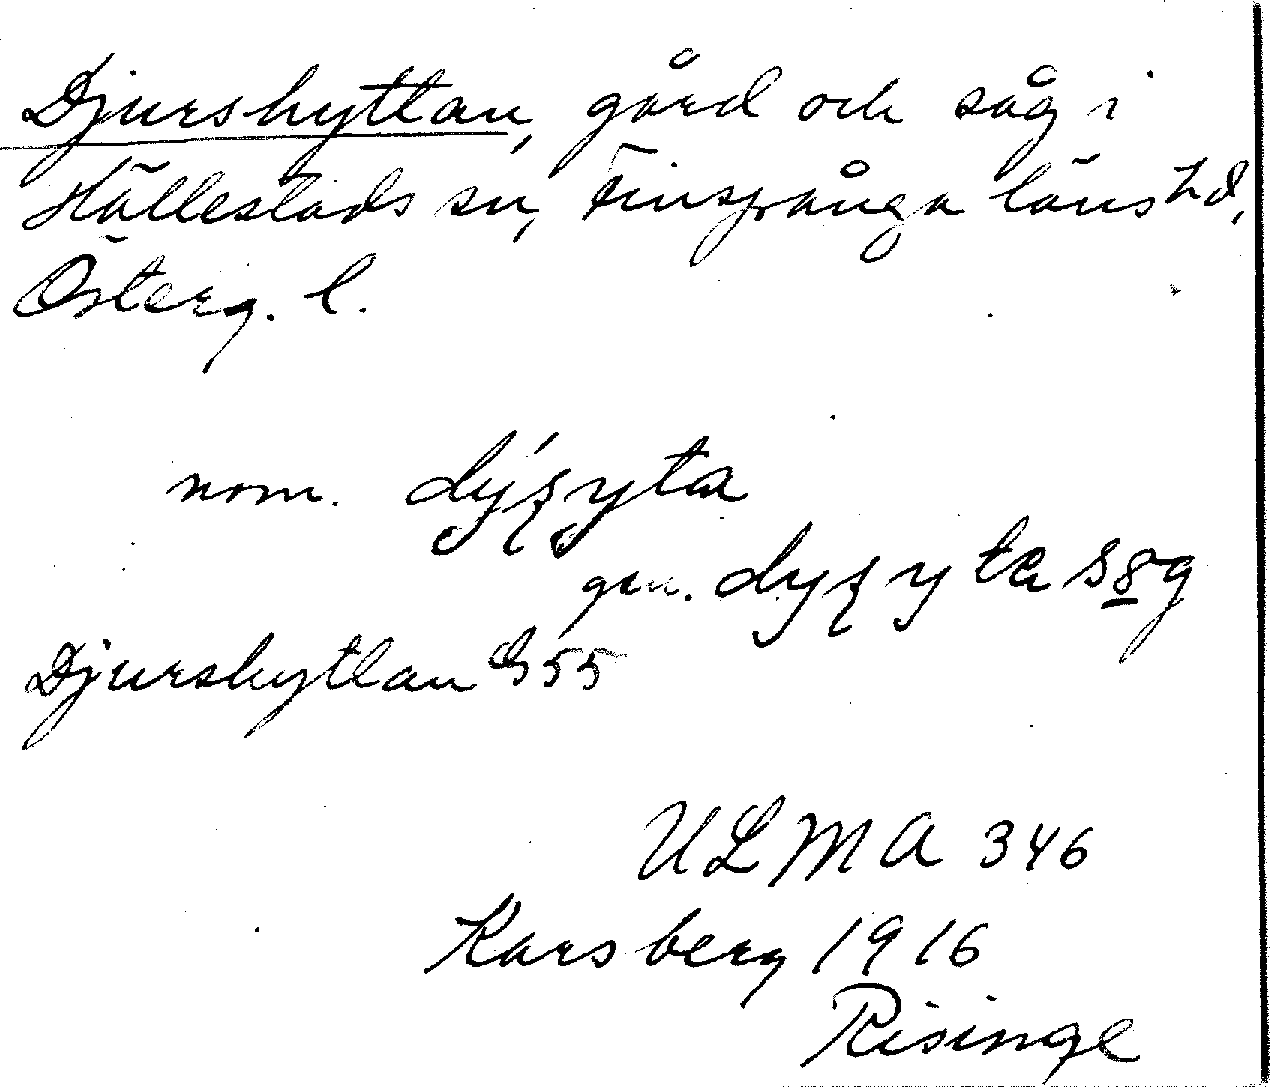 Djurshyttan, gård och såg i
Hällestads sn, Finspånga läns hd,
Österg. l.
nom. dýʂyta
gen. dyʂyta s8g
Djurshyttan G 55
ULMA 346
Karsberg 1916
Risinge